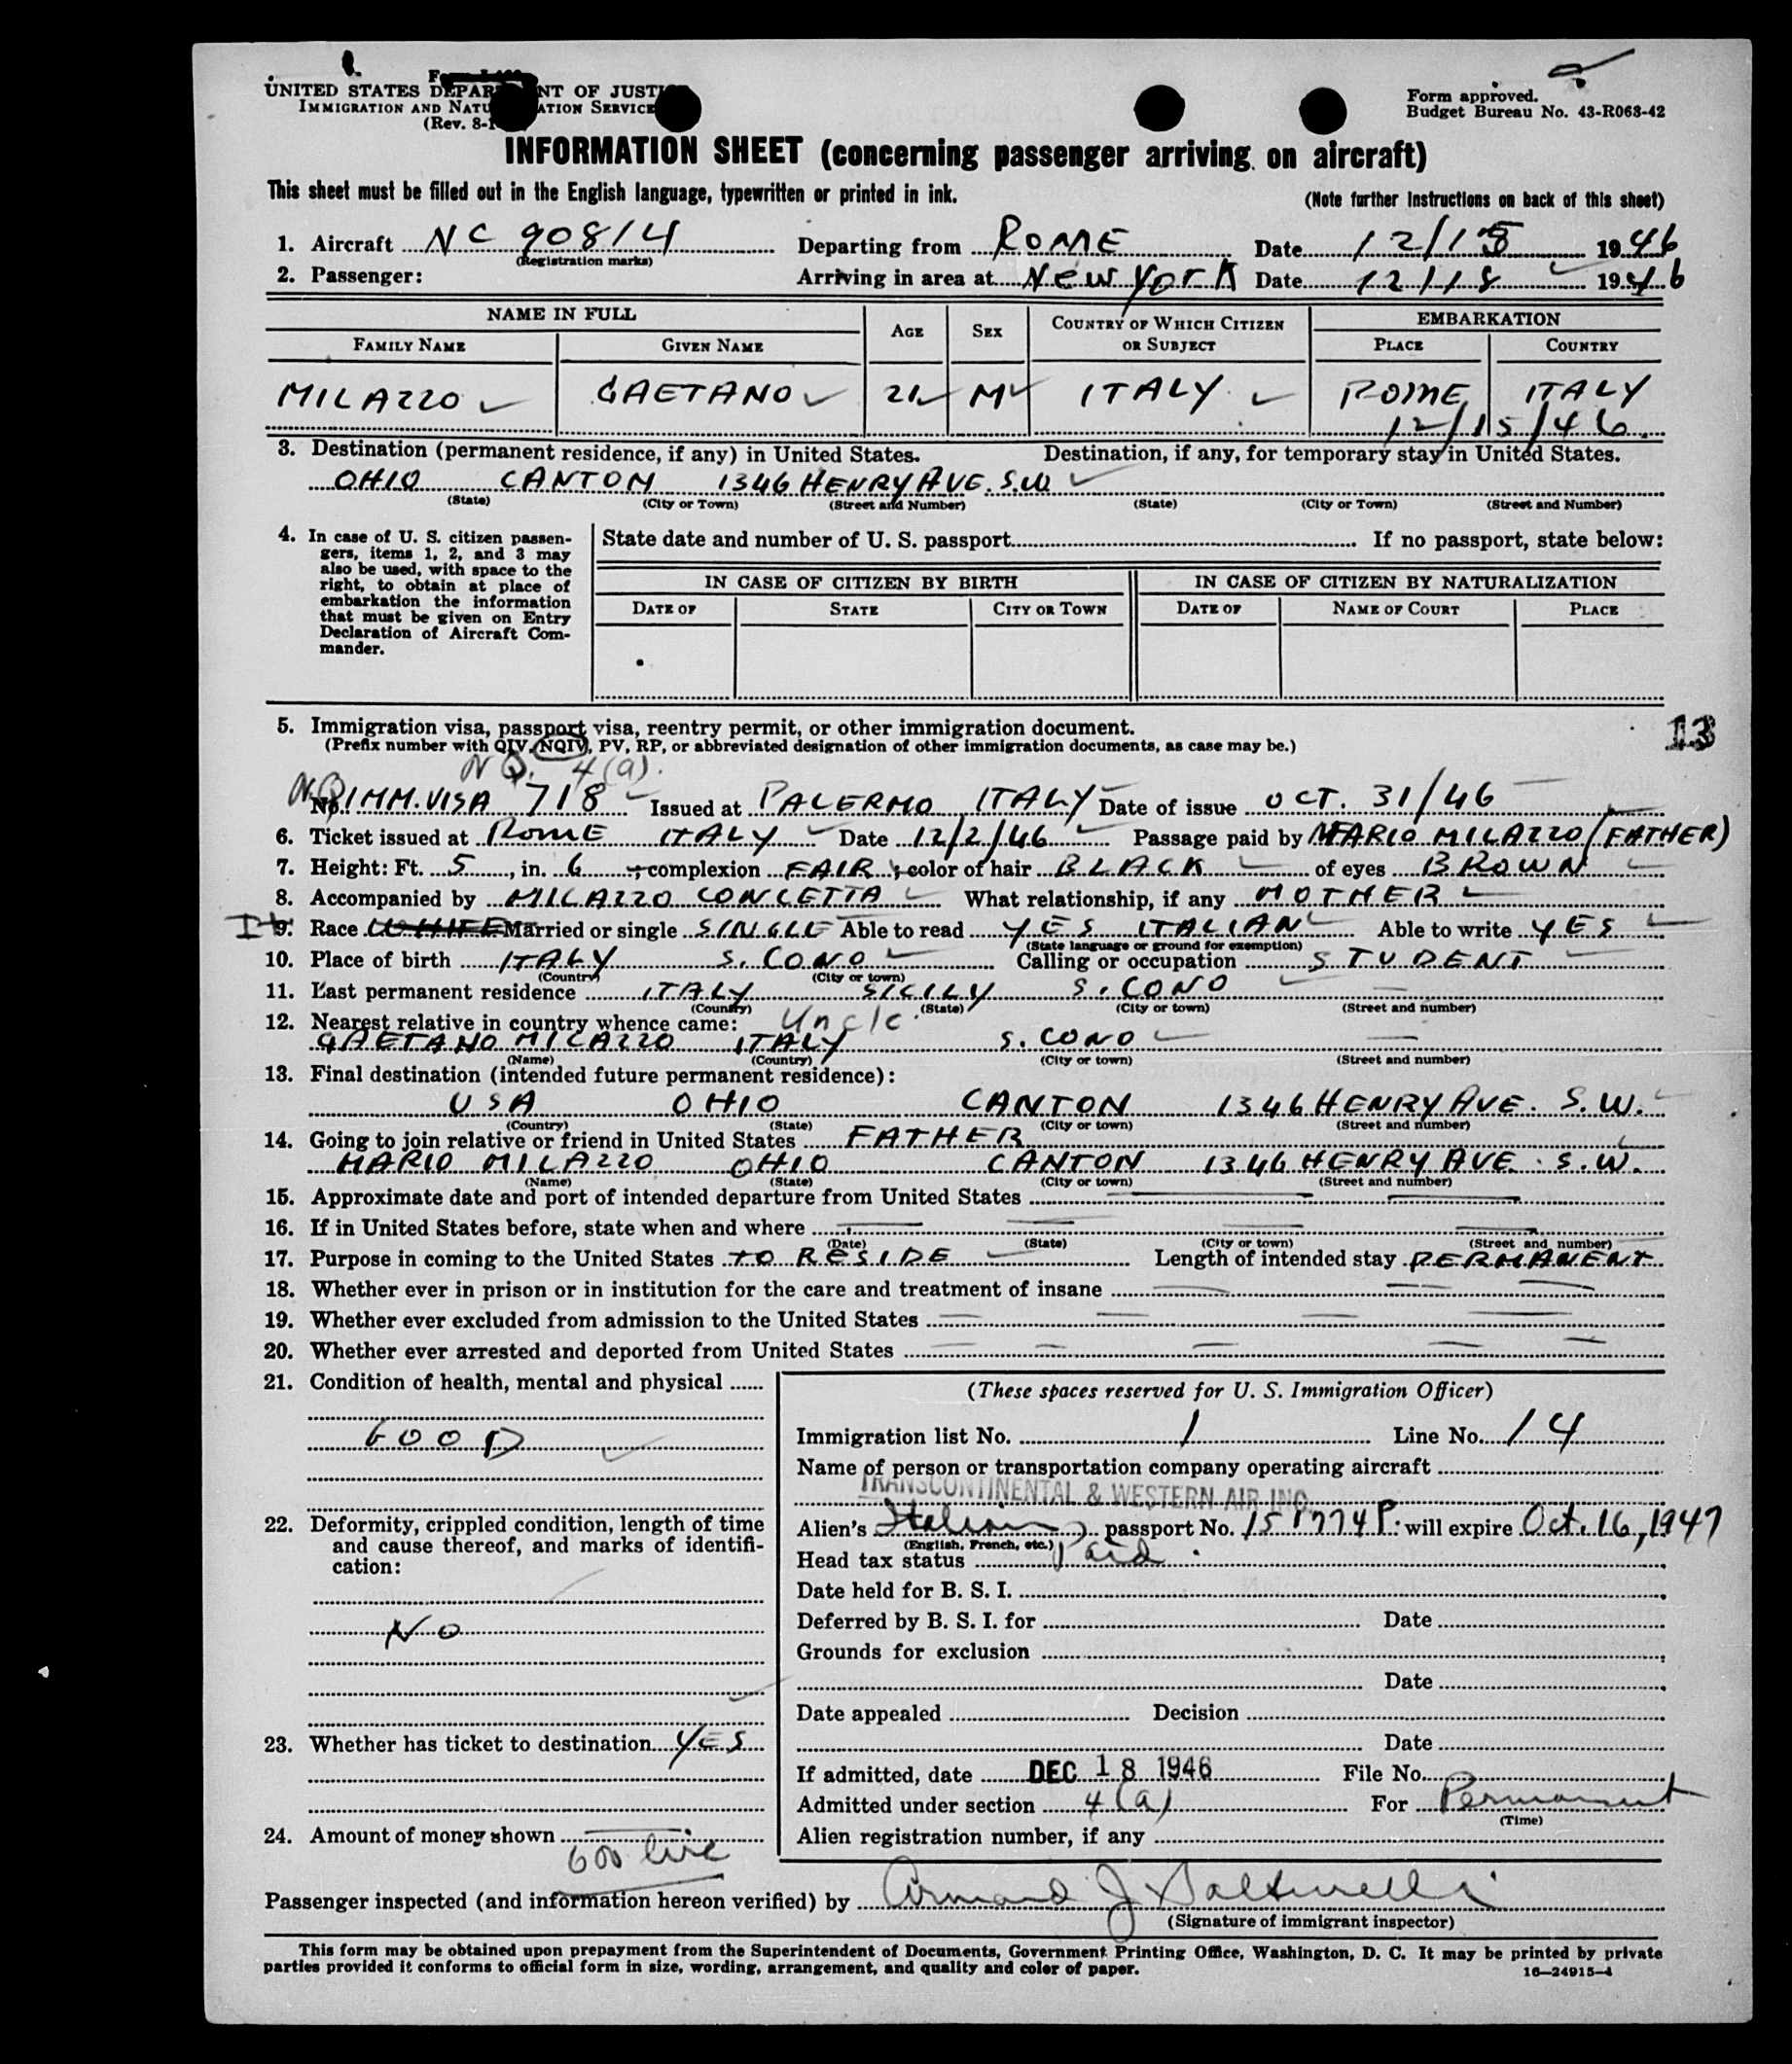 UNITED STATES DEPARTMENT OF JUSTICE
IMMIGRATION AND NATURALIZATION SERVICE
(Rev. 8-1
Form approved.
Budget Bureau No. 43-R063-42
INFORMATION SHEET (concerning passenger arriving on aircraft)
This sheet must be filled out in the English language, typewritten or printed in ink. (Note further instructions on back of this sheet)
1. Aircraft NC 90814 Departing from ROME Date 12/15 1946
(Registration marks)
2. Passenger: Arriving in area at New York Date 12/18 1946
NAME IN FULL AGE SEX COUNTRY OF WHICH CITIZEN OR SUBJECT EMBARKATION
FAMILY NAME GIVEN NAME PLACE COUNTRY
MILAZZO GAETANO 21 M ITALY ROME ITALY
12/15/46
3. Destination (permanent residence, if any) in United States. Destination, if any, for temporary stay in United States.
OHIO CANTON 1346 HENRY AVE. S.W
(State) (City or Town) (Street and Number) (State) (City or Town) (Street and Number)
4. In case of U. S. citizen passengers, items 1, 2, and 3 may also be used, with space to the right, to obtain at place of embarkation the information that must be given on Entry Declaration of Aircraft Commander.
State date and number of U. S. passport If no passport, state below:
IN CASE OF CITIZEN BY BIRTH IN CASE OF CITIZEN BY NATURALIZATION
DATE OF STATE CITY OR TOWN DATE OF NAME OF COURT PLACE
5. Immigration visa, passport visa, reentry permit, or other immigration document. 13
(Prefix number with QIV, NQIV, PV, RP, or abbreviated designation of other immigration documents, as case may be.)
N Q. 4(a).
N.Q. No. IMM. VISA 718 Issued at PALERMO ITALY Date of issue OCT. 31/46
6. Ticket issued at ROME ITALY Date 12/2/46 Passage paid by MARIO MILAZZO (FATHER)
7. Height: Ft. 5, in. 6; complexion FAIR; color of hair BLACK of eyes BROWN
8. Accompanied by MILAZZO CONCETTA What relationship, if any MOTHER
9. Race WHITE Married or single SINGLE Able to read YES ITALIAN Able to write YES
(State language or ground for exemption)
10. Place of birth ITALY S. CONO Calling or occupation STUDENT
(Country) (City or town)
11. Last permanent residence ITALY SICILY S. CONO
(Country) (State) (City or town) (Street and number)
12. Nearest relative in country whence came: Uncle
GAETANO MILAZZO ITALY S. CONO
(Name) (Country) (City or town) (Street and number)
13. Final destination (intended future permanent residence):
USA OHIO CANTON 1346 HENRY AVE. S.W.
(Country) (State) (City or town) (Street and number)
14. Going to join relative or friend in United States FATHER
MARIO MILAZZO OHIO CANTON 1346 HENRY AVE. S.W.
(Name) (State) (City or town) (Street and number)
15. Approximate date and port of intended departure from United States
16. If in United States before, state when and where
(Date) (State) (City or town) (Street and number)
17. Purpose in coming to the United States TO RESIDE Length of intended stay PERMANENT
18. Whether ever in prison or in institution for the care and treatment of insane
19. Whether ever excluded from admission to the United States
20. Whether ever arrested and deported from United States
21. Condition of health, mental and physical
GOOD
22. Deformity, crippled condition, length of time and cause thereof, and marks of identification:
NO
23. Whether has ticket to destination YES
24. Amount of money shown
600 lire
(These spaces reserved for U. S. Immigration Officer)
Immigration list No. 1 Line No. 14
Name of person or transportation company operating aircraft
TRANSCONTINENTAL & WESTERN AIR INC.
Alien's Italian passport No. 151774P. will expire Oct. 16, 1947
(English, French, etc.)
Head tax status Paid
Date held for B. S. I.
Deferred by B. S. I. for Date
Grounds for exclusion
Date
Date appealed Decision
Date
If admitted, date DEC 18 1946 File No.
Admitted under section 4(a) For Permanent
(Time)
Alien registration number, if any
Passenger inspected (and information hereon verified) by Armand J
(Signature of immigrant inspector)
This form may be obtained upon prepayment from the Superintendent of Documents, Government Printing Office, Washington, D. C. It may be printed by private
parties provided it conforms to official form in size, wording, arrangement, and quality and color of paper.
16—24915-4